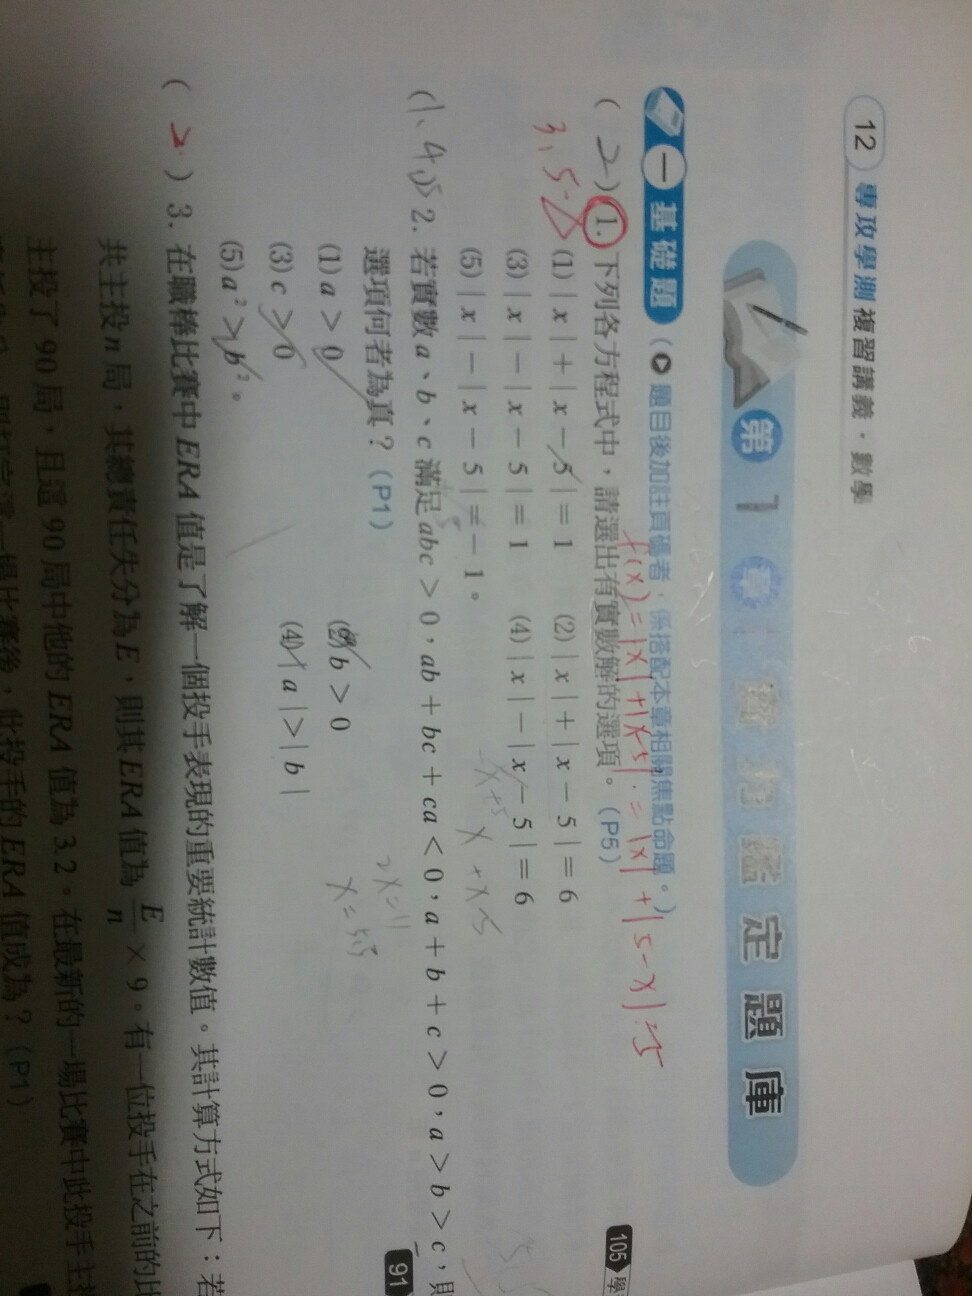 12 專攻學測複習講義·數學
第 1 章 定題庫
一 基礎題 (▶題目後加註頁碼者,係搭配本章相關焦點命題。)
f(x)=|x|+|x-5|.=|x|+|5-x|≥5
( 2 ) 1. 下列各方程式中,請選出有實數解的選項。(P5) 105 學
3,5
(1)|x|+|x-5|=1 (2)|x|+|x-5|=6
(3)|x|-|x-5|=1 (4)|x|-|x-5|=6
(5)|x|-|x-5|=-1。
(1、4、5) 2. 若實數a、b、c滿足abc>0,ab+bc+ca<0,a+b+c>0,a>b>c,則
選項何者為真?(P1) 91
2x=11
(1)a>0 (2)b>0
x=5.5
(3)c>0 (4)|a|>|b|
(5)a²>b²。
( 2 ) 3. 在職棒比賽中ERA值是了解一個投手表現的重要統計數值。其計算方式如下:若
共主投n局,其總責任失分為E,則其ERA值為E/n×9。有一位投手在之前的比
主投了90局,且這90局中他的ERA值為3.2。在最新的一場比賽中此投手主投
此投手的ERA值成為?(P1)